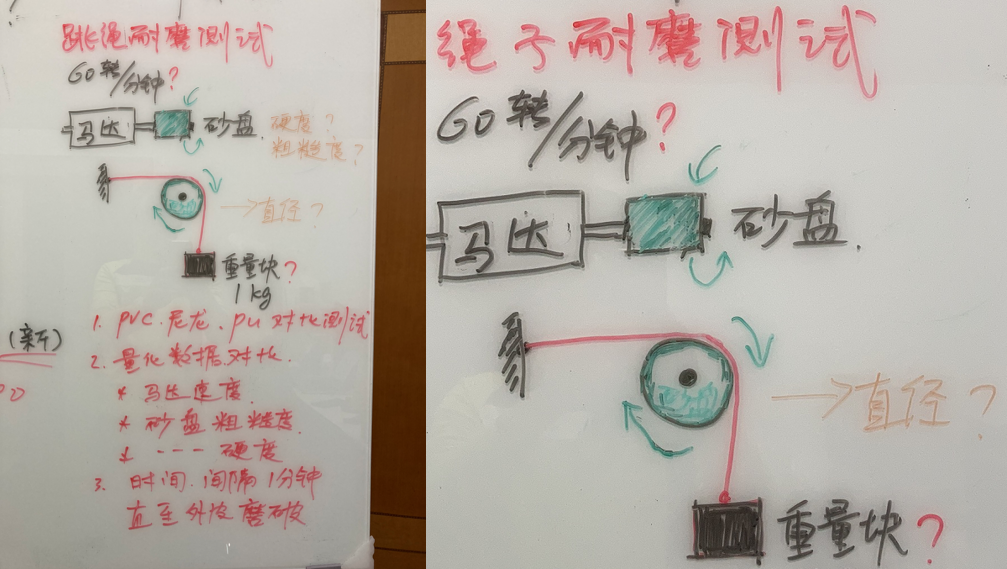 跳绳耐磨测试
60转/分钟?
马达
砂盘.
硬度?
粗糙度?
→直径?
重量块?
1kg
1. PVC.尼龙.PU对比测试
2. 量化数据对比.
* 马达速度.
* 砂盘粗糙度.
* --- 硬度
3. 时间.间隔1分钟
直至外皮磨破
绳子耐磨测试
60转/分钟?
马达
砂盘.
→直径?
重量块?